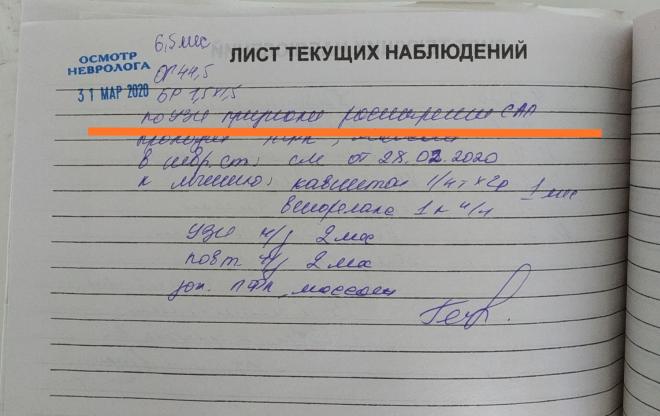 6,5 мес
ОСМОТР
НЕВРОЛОГА
ЛИСТ ТЕКУЩИХ НАБЛЮДЕНИЙ
ОГ 44,5
31 МАР 2020
БР 1,5х1,5
по УЗИ признаки расширения САП
в невр. ст. см от 28.02.2020
к лечению: кавинтон 1/4т х 2р
1 мес
1 к
УЗИ ч/з 2 мес
повт ч/з 2 мес
массаж